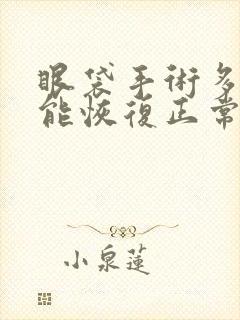 眼袋手術多
能恢復正常
小泉蓮